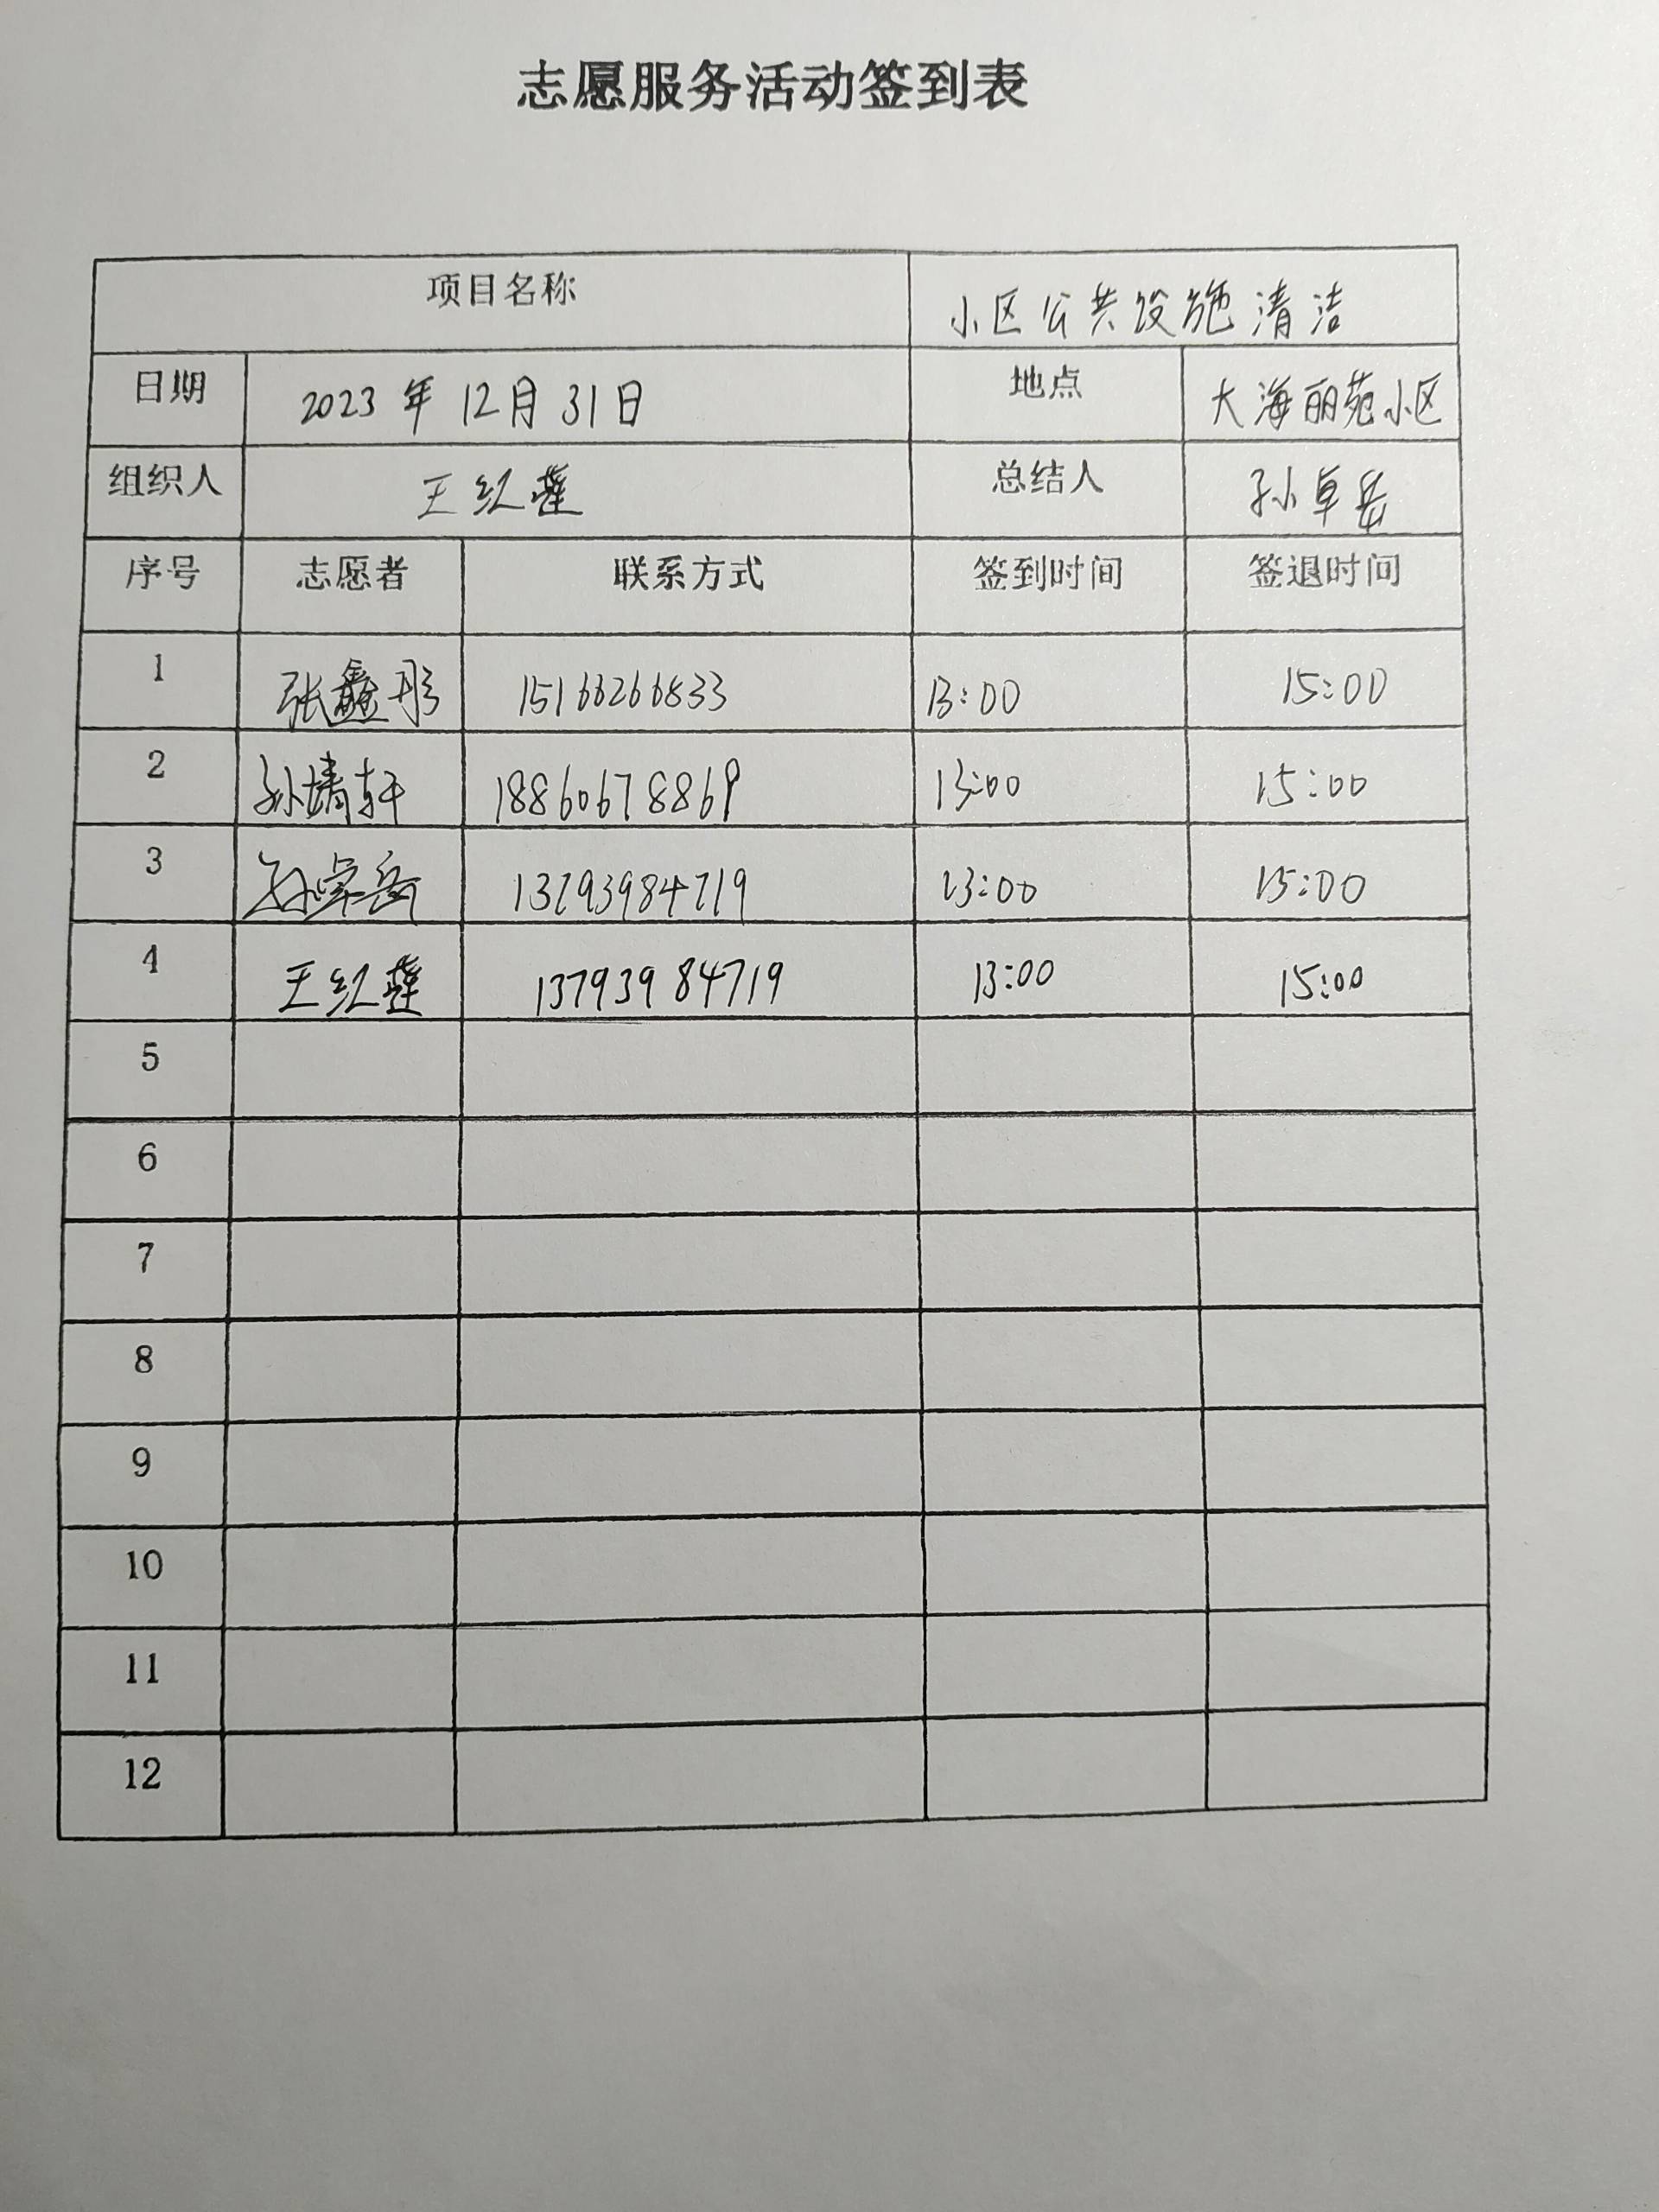 志愿服务活动签到表
项目名称 小区公共设施清洁
日期 2023年12月31日 地点 大海丽苑小区
组织人 王红莲 总结人 孙卓岳
序号 志愿者 联系方式 签到时间 签退时间
1 张鑫彤 15166266833 13:00 15:00
2 孙婧轩 18860678869 13:00 15:00
3 孙卓岳 13793984719 13:00 15:00
4 王红莲 13793984719 13:00 15:00
5
6
7
8
9
10
11
12